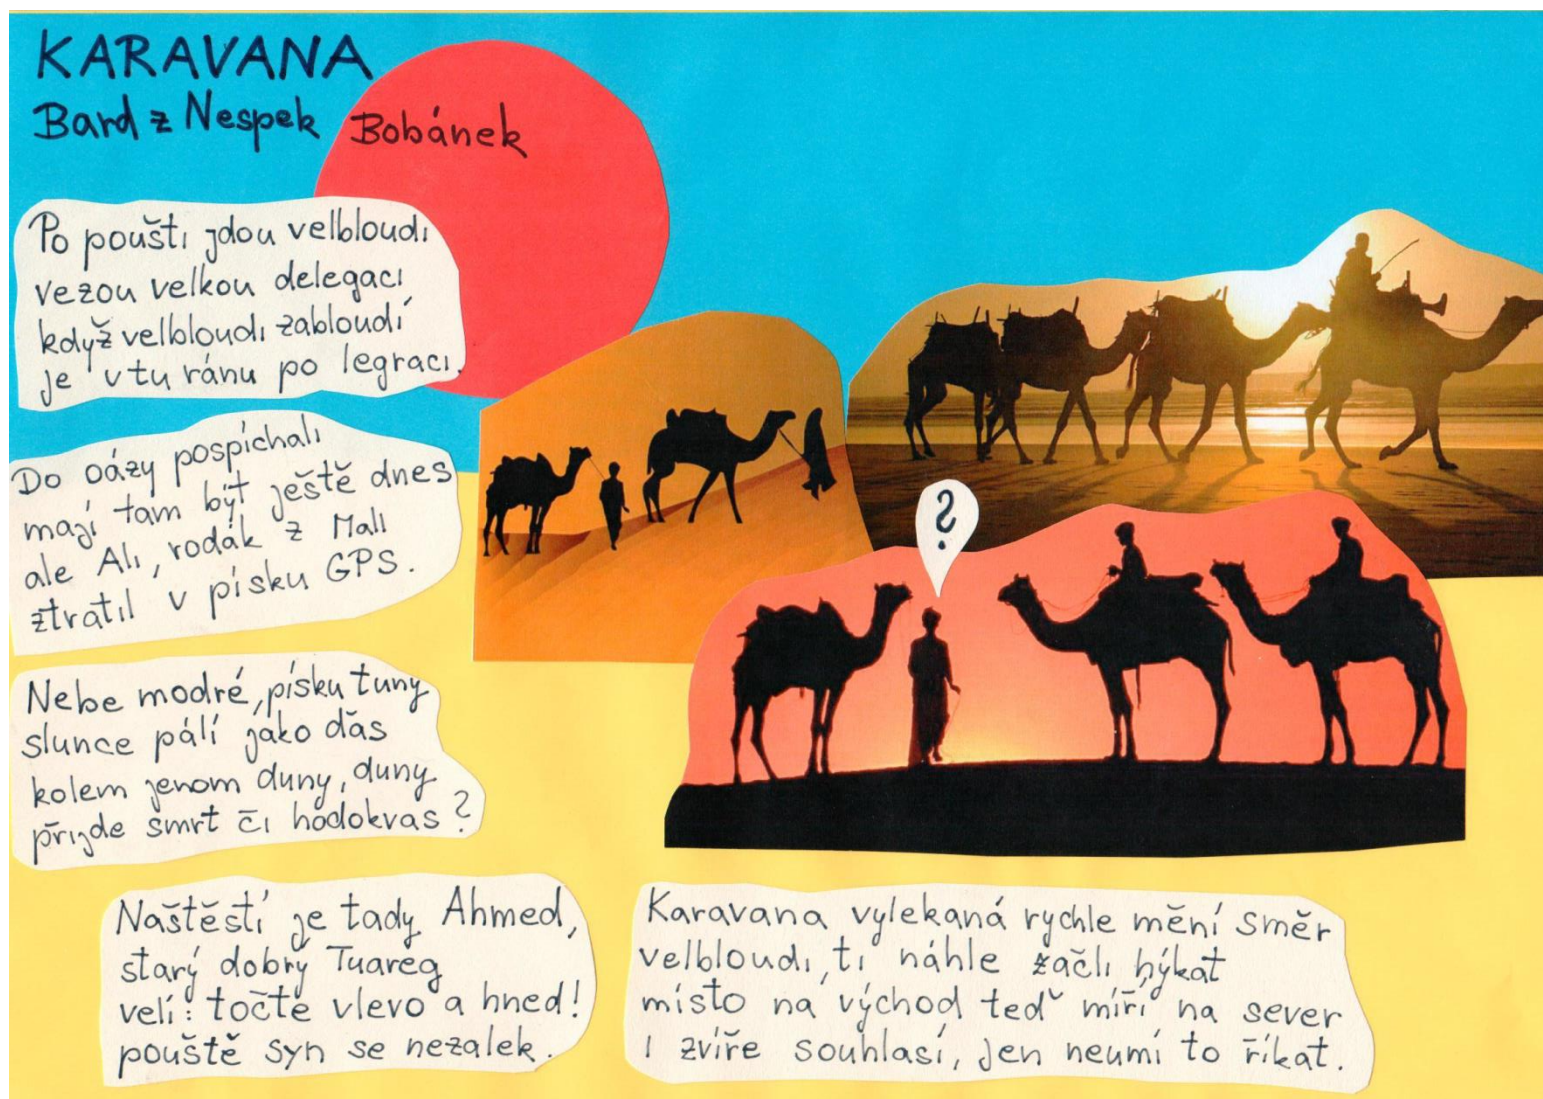 KARAVANA
Bard z Nespek Bobánek
Po poušti jdou velbloudi
vezou velkou delegaci
když velbloudi zabloudí
je v tu ránu po legraci.
Do oázy pospíchali
mají tam být ještě dnes
ale Ali, rodák z Mali
ztratil v písku GPS.
Nebe modré, písku tuny
slunce pálí jako ďas
kolem jenom duny, duny
přijde smrt či hodokvas?
?
Naštěstí je tady Ahmed,
starý dobrý Tuareg
velí: točte vlevo a hned!
pouště syn se nezalek.
Karavana vylekaná rychle mění směr
velbloudi, ti náhle začli hýkat
místo na východ teď míří na sever
i zvíře souhlasí, jen neumí to říkat.